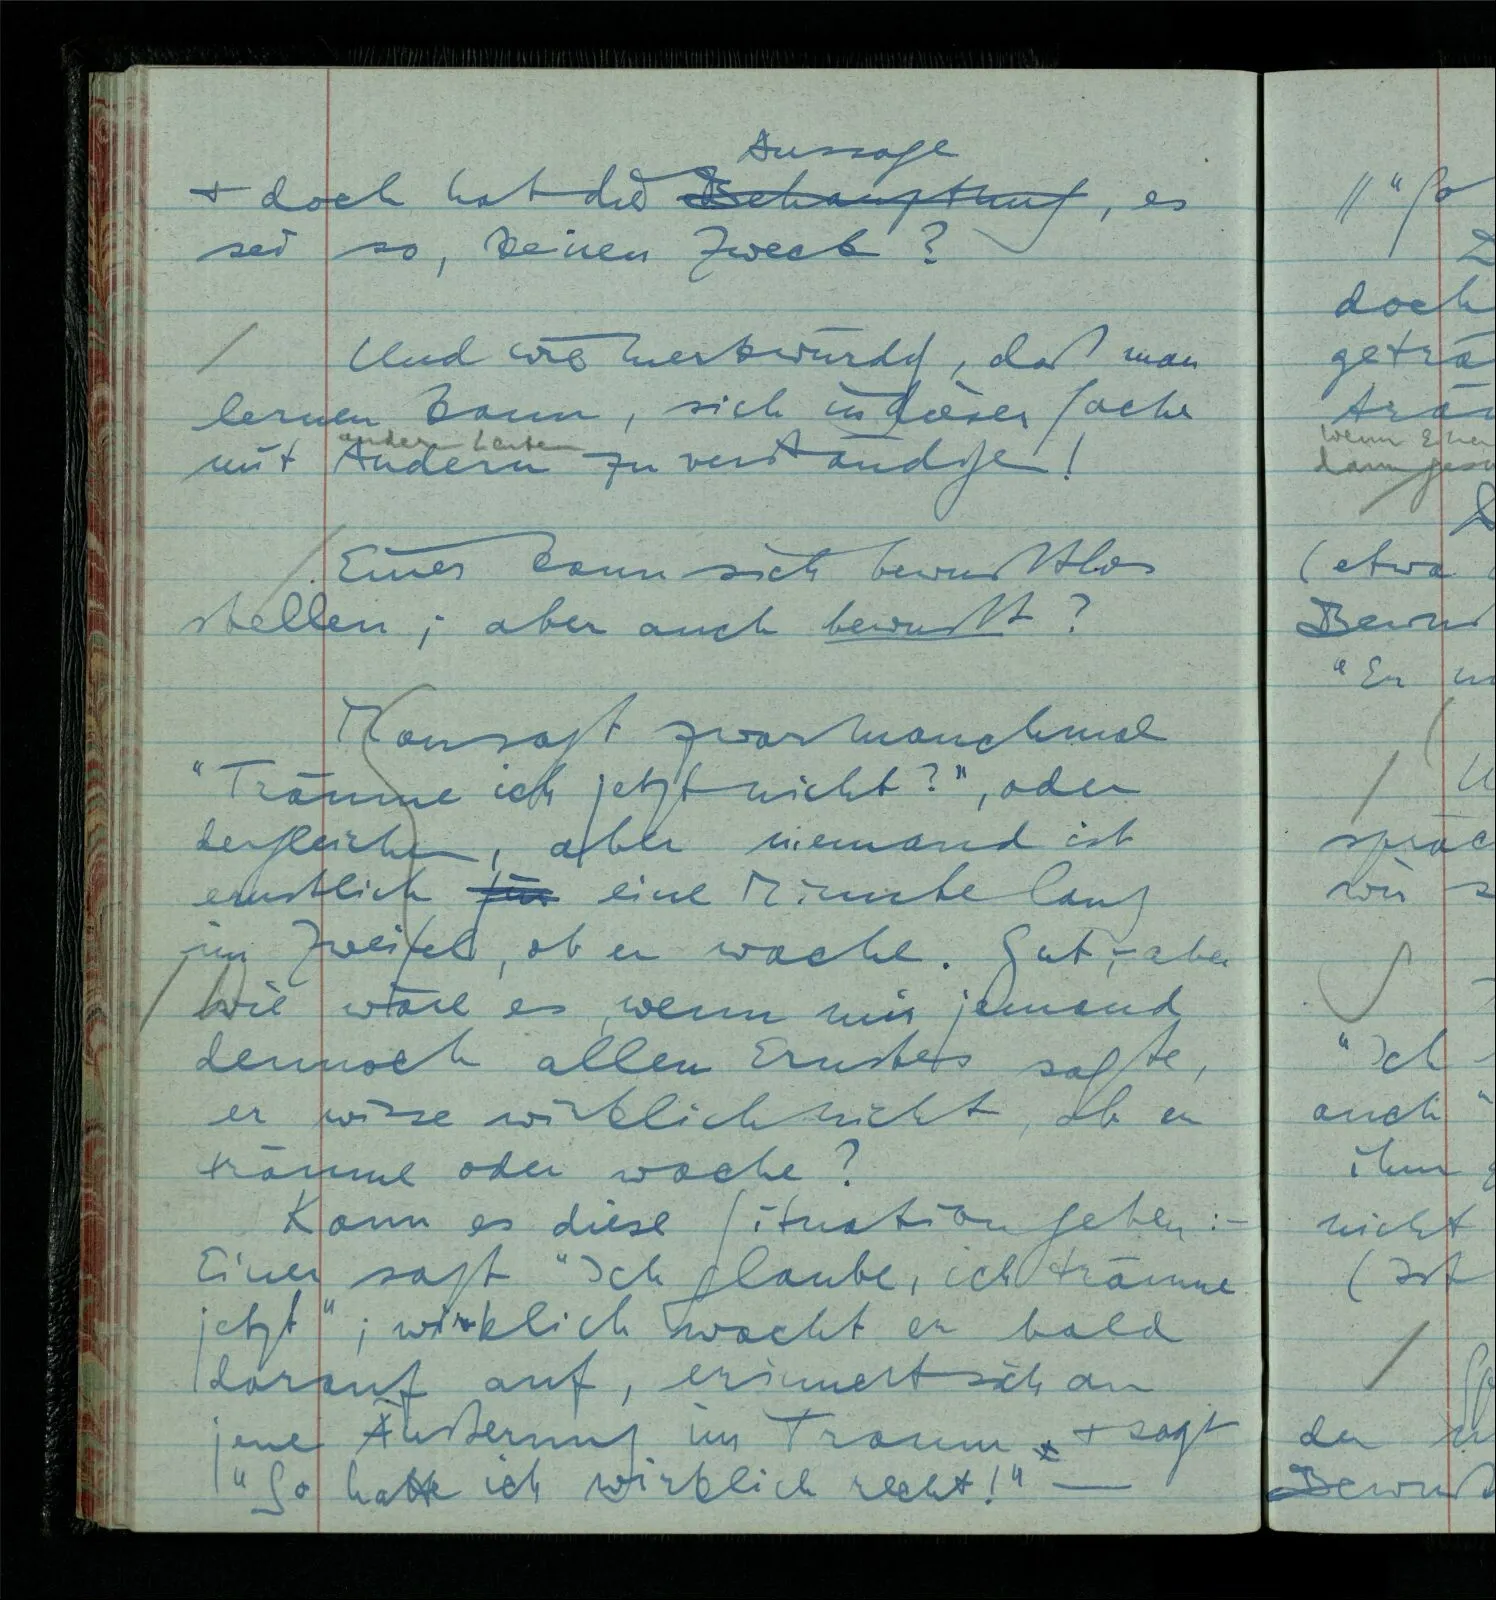 Aussage
+ doch hat die Behauptung, es
sei so, keinen Zweck?
Und wie merkwürdig, daß man
lernen kann, sich in dieser Sache
andern Leuten
mit Andern zu verständigen!
Einer kann sich bewußtlos
stellen; aber auch bewußt?
Man sagt zwar manchmal
"Träume ich jetzt nicht?", oder
dergleichen, aber niemand ist
ernstlich für eine Minute lang
im Zweifel, ob er wache. Gut, – aber
wie wäre es, wenn mir jemand
dennoch allen Ernstes sagte,
er wisse wirklich nicht, ob er
träume oder wache?
Kann es diese Situation geben: –
Einer sagt "Ich glaube, ich träume
jetzt"; wirklich wacht er bald
darauf auf, erinnert sich an
jene Äußerung im Traum + sagt
"So hatte ich wirklich recht!" —
// "So
doch
geträ
träu
wenn Einer
dann
(etwa
Bewuß
"Er
U
sprac
wir s
"Ich
auch "
ihm
nicht
(Ist
So
der
Bewußt